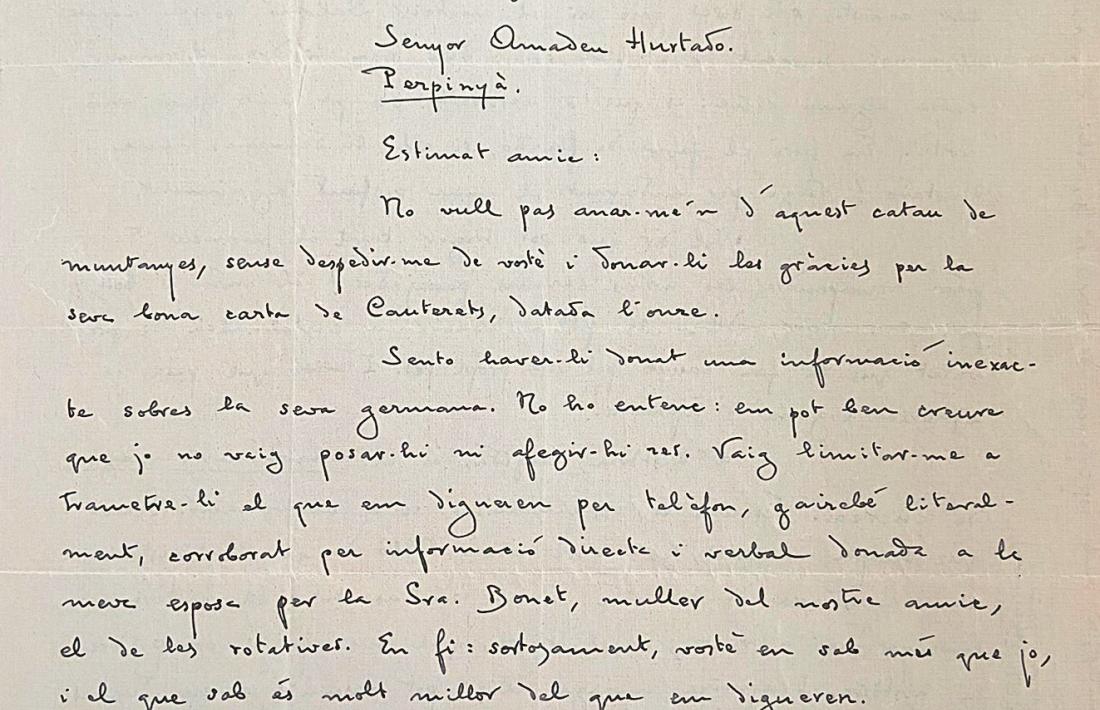 Senyor Amadeu Hurtado.
Perpinyà.
Estimat amic:
No vull pas anar-me'n d'aquest catau de
muntanyes, sense despedir-me de vostè i donar-li les gràcies per la
seva bona carta de Cauterets, datada l'onze.
Sento haver-li donat una informació inexac-
te sobres la seva germana. No ho entenc: em pot ben creure
que jo no vaig posar-hi ni afegir-hi res. Vaig limitar-me a
trametre-li el que em digueren per telèfon, gairebé literal-
ment, corroborat per informació directe i verbal donada a la
meva esposa per la Sra. Bonet, muller del nostre amic,
el de les rotatives. En fi: sortosament, vostè en sab més que jo,
i el que sab és molt millor del que em digueren.